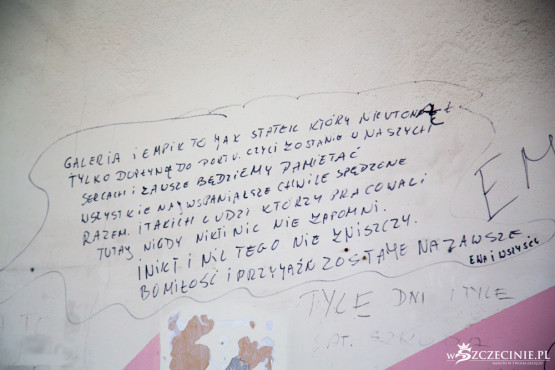 GALERIA I EMPIK TO JAK STATEK KTÓRY NIE UTONĄŁ
TYLKO DOPŁYNĄŁ DO PORTU. CZYLI ZOSTANIE W NASZYCH
SERCACH I ZAWSZE BĘDZIEMY PAMIETAĆ
WSZYSTKIE NAJWSPANIALSZE CHWILE SPĘDZONE
RAZEM. I TAKICH LUDZI KTÓRZY PRACOWALI
TUTAJ NIGDY NIKT I NIC NIE ZAPOMNI.
I NIKT I NIC TEGO NIE ZNISZCZY.
BO MIŁOŚĆ I PRZYJAŹŃ ZOSTANE NA ZAWSZE.
EWA I WSZYSCY
EM
TYLE DNI I TYLE
LAT.
wSZCZECINIE.PL